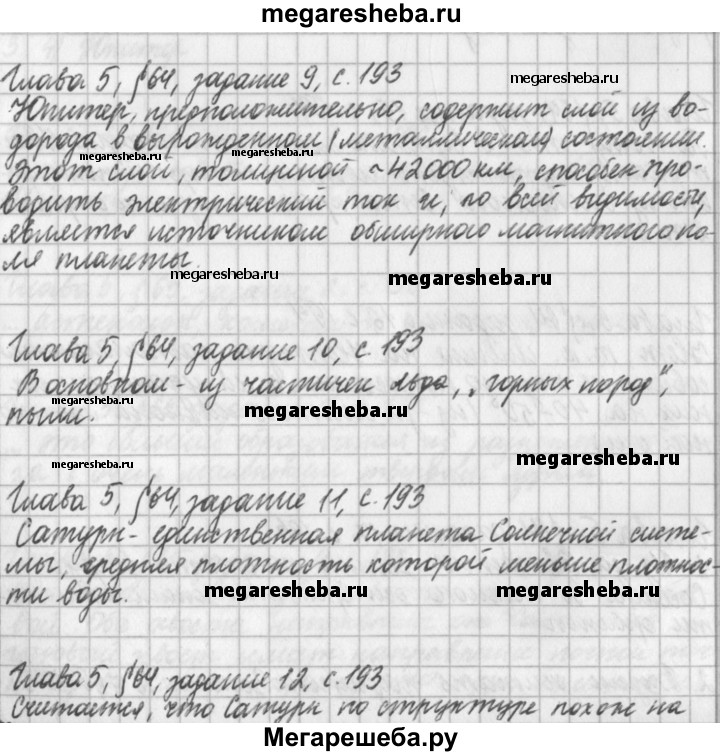 megaresheba.ru
Глава 5, §64, задание 9, с. 193
megaresheba.ru
Юпитер, предположительно, содержит слой из во-
дорода в вырожденном (металлическом) состоянии.
megaresheba.ru megaresheba.ru
Этот слой, толщиной ~42000 км, способен про-
водить электрический ток и, по всей видимости,
является источником обширного магнитного по-
ля планеты.
megaresheba.ru megaresheba.ru
Глава 5, §64, задание 10, с. 193
В основном - из частичек льда, „горных пород",
megaresheba.ru
пыли.
megaresheba.ru
megaresheba.ru
megaresheba.ru
Глава 5, §64, задание 11, с. 193
Сатурн - единственная планета Солнечной систе-
мы, средняя плотность которой меньше плотнос-
ти воды.
megaresheba.ru megaresheba.ru
Глава 5, §64, задание 12, с. 193
Считается, что Сатурн по структуре похож на
Мегарешеба.ру